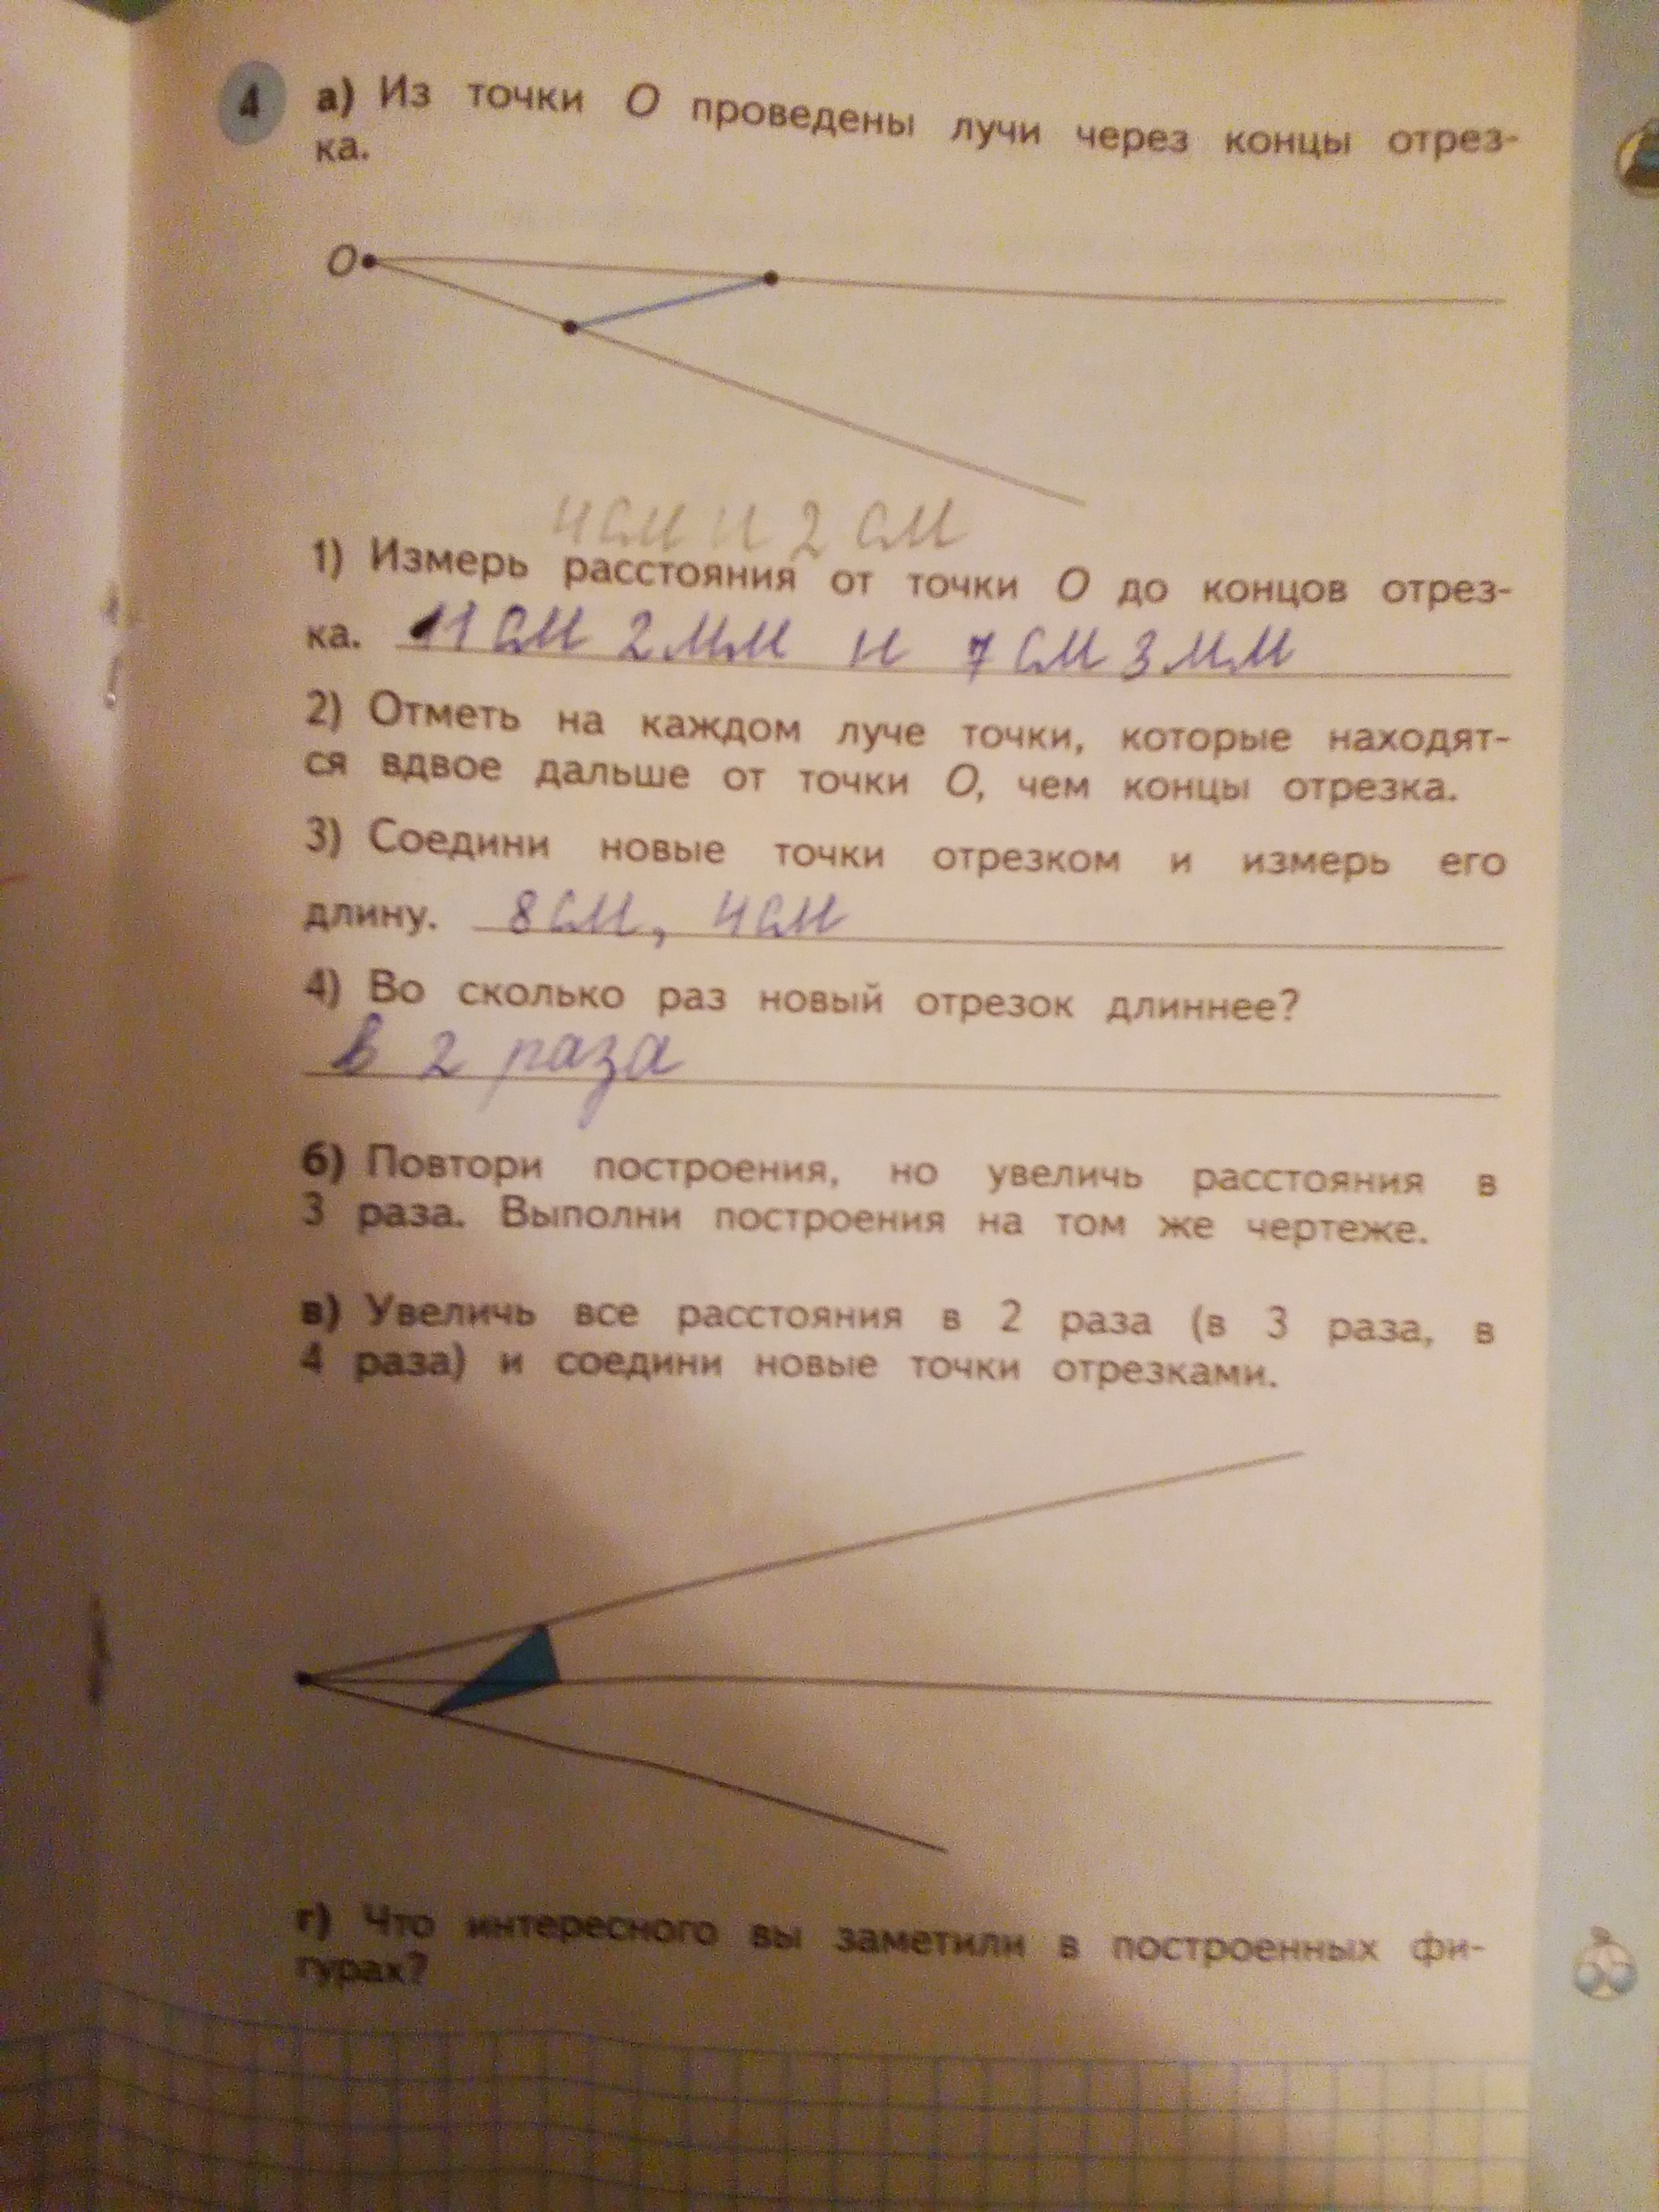 4 а) Из точки О проведены лучи через концы отрез-
ка.
О
4см и 2 см
1) Измерь расстояния от точки О до концов отрез-
ка. 11 см 2 мм и 7 см 3 мм
2) Отметь на каждом луче точки, которые находят-
ся вдвое дальше от точки О, чем концы отрезка.
3) Соедини новые точки отрезком и измерь его
длину. 8 см, 4 см
4) Во сколько раз новый отрезок длиннее?
в 2 раза
б) Повтори построения, но увеличь расстояния в
3 раза. Выполни построения на том же чертеже.
в) Увеличь все расстояния в 2 раза (в 3 раза, в
4 раза) и соедини новые точки отрезками.
г) Что интересного вы заметили в построенных фи-
гурах?